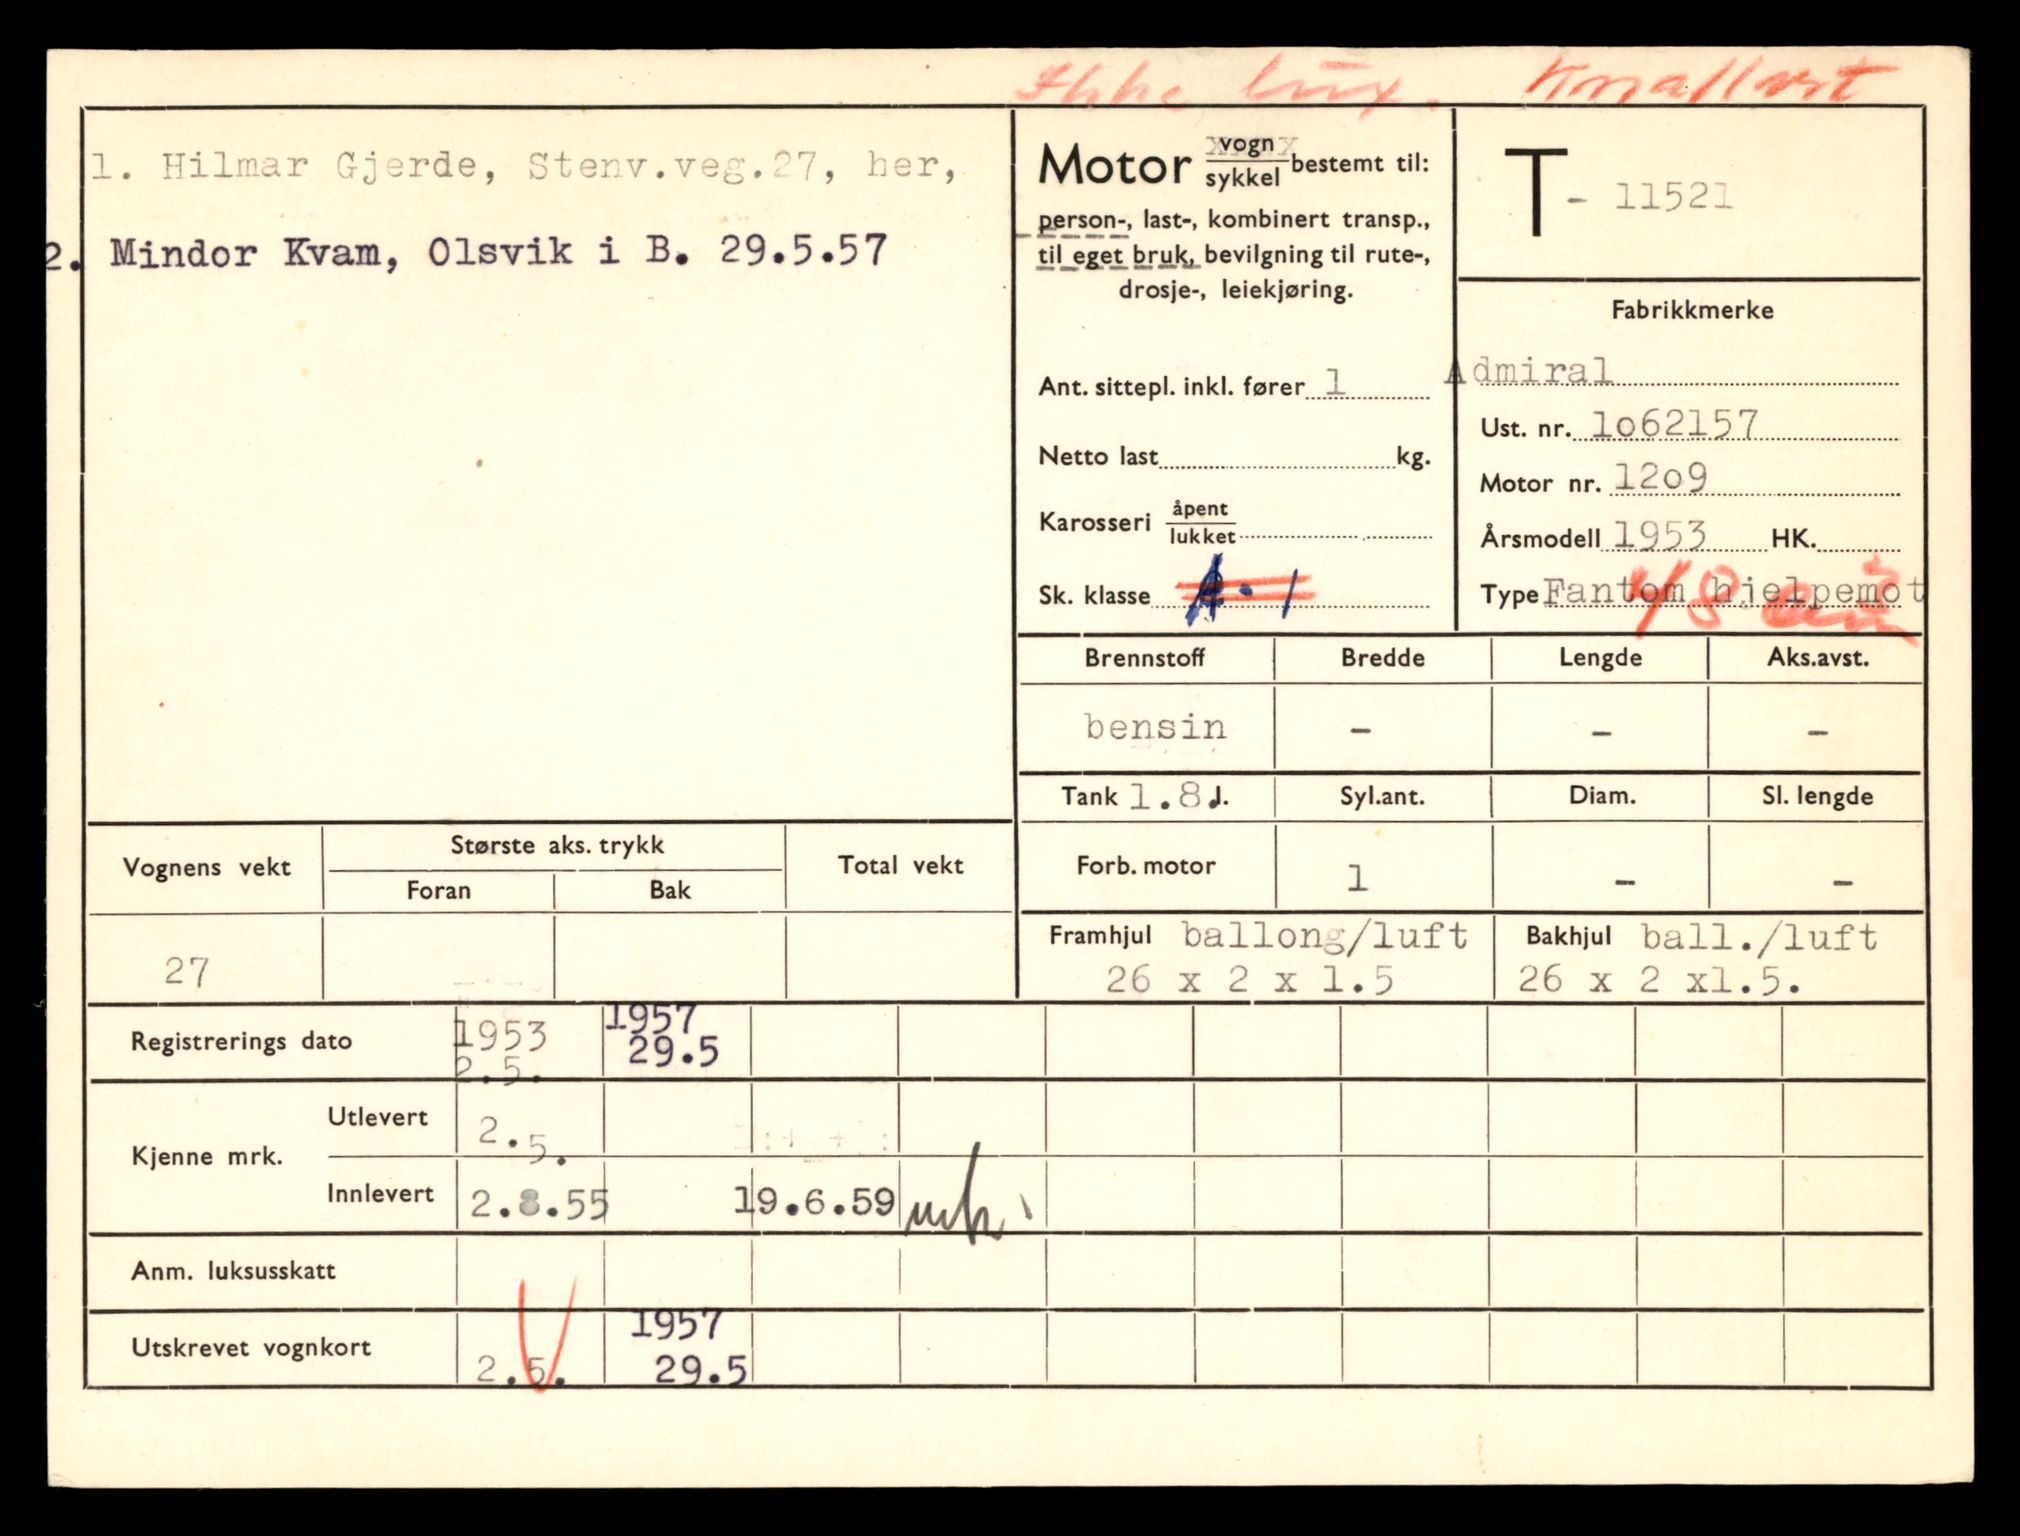 Ikke lux. Knallert
1. Hilmar Gjerde, Stenv.veg.27, her,
2. Mindor Kvam, Olsvik i B. 29.5.57
Motor vogn
sykkel bestemt til:
person-, last-, kombinert transp.,
til eget bruk, bevilgning til rute-,
drosje-, leiekjøring.
Ant. sittepl. inkl. fører 1
Netto last kg.
Karosseri åpent
lukket
Sk. klasse
T - 11521
Fabrikkmerke
Admiral
Ust. nr. 1o62157
Motor nr. 12o9
Årsmodell 1953 HK.
Type Fantom hjelpemot
48
Brennstoff Bredde Lengde Aks.avst.
bensin - - -
Tank 1.8 l. Syl.ant. Diam. Sl. lengde
Forb. motor 1 - -
Framhjul ballong/luft Bakhjul ball./luft
26 x 2 x 1.5 26 x 2 x1.5.
Vognens vekt Største aks. trykk Total vekt
Foran Bak
27
Registrerings dato 1953 1957
2.5. 29.5
Kjenne mrk. Utlevert 2.5.
Innlevert 2.8.55 19.6.59
Anm. luksusskatt
Utskrevet vognkort 1957
2.5. 29.5